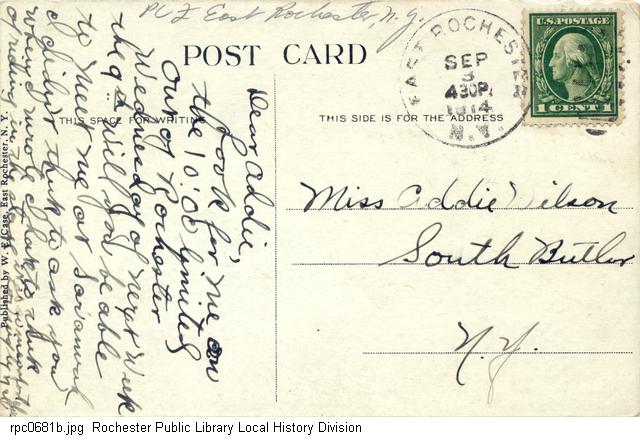 PCZ East Rochester, N.Y.
POST CARD
EAST ROCHESTER
SEP
3
430P.
1914
N.Y.
U.S. POSTAGE
1 CENT 1
THIS SPACE FOR WRITING
THIS SIDE IS FOR THE ADDRESS
Dear Addie,
Look for me on
the 10:00 limited
out of Rochester
Wednesday of next week
the 9th will you be able
to meet me at Savannah
I didn't think to ask you
when I wrote
Miss Addie Wilson
South Butler
N.Y.
Published by W. E. Case, East Rochester, N. Y.
rpc0681b.jpg Rochester Public Library Local History Division